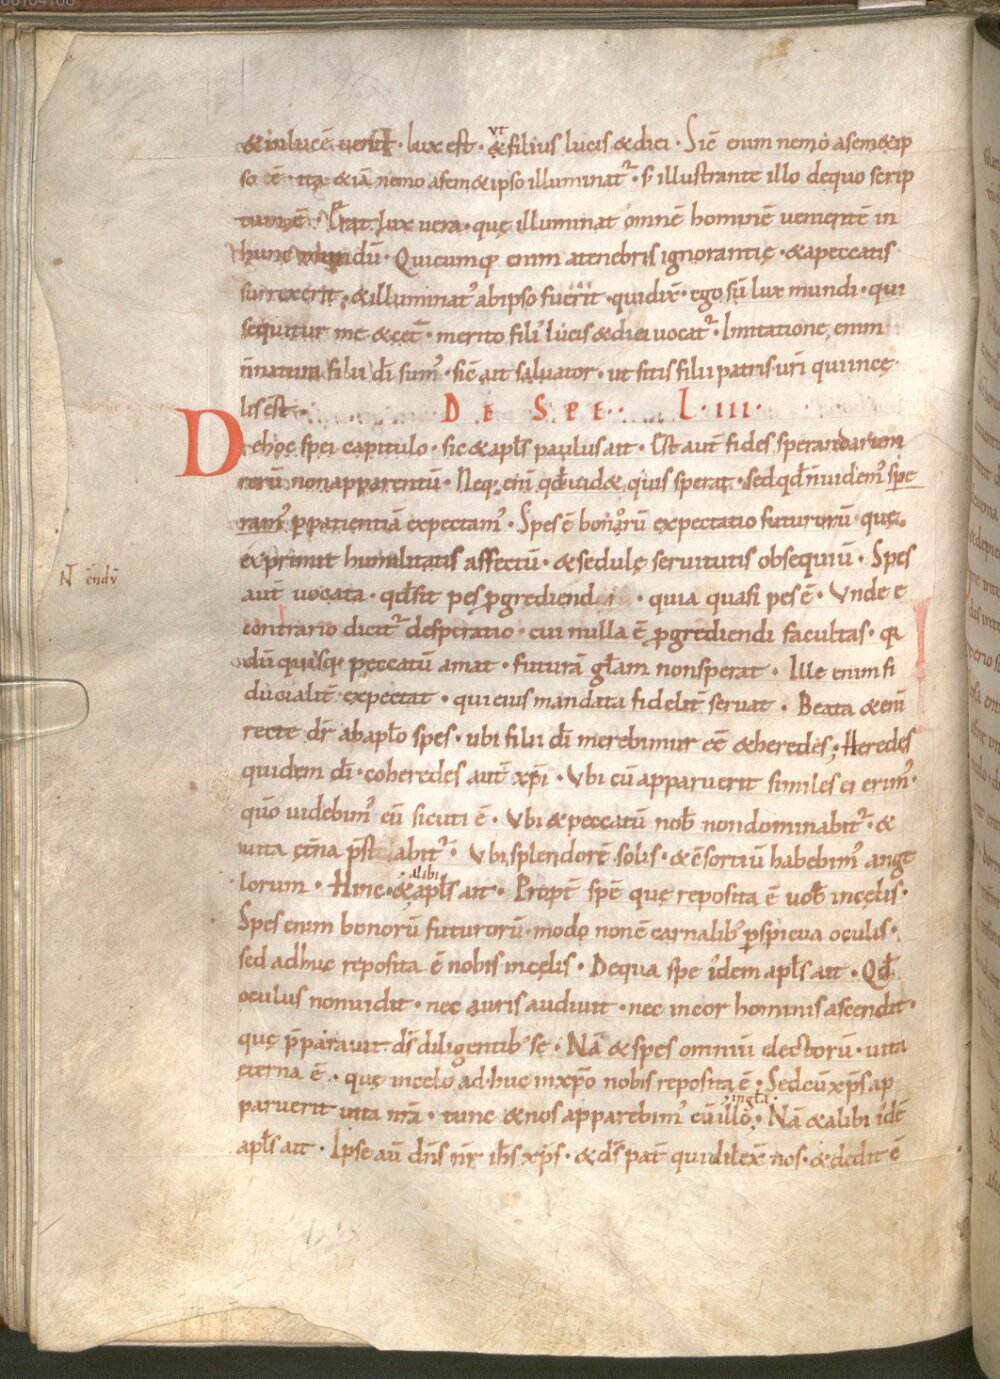 00104168
& inlucē uenit · lux est · ut & filius lucis & diei · Sic̄ enim nemo asem&ip
so ē · ita & iā nemo asem&ipso illuminat᷑ · s; illustrante illo dequo scrip
tum ē · Erat lux uera · quę illuminat omnē hominē uenientē in
hunc mundū · Quicumq; enim atenebris ignorantię · & apeccatis
surrexerit · & illuminat᷒ abipso fuerit · quidix̄ · ego sū lux mundi · qui
sequitur me & cet̄ · merito fili᷒ lucis & diei uocat᷑ · Imitatione enim
n̄ natura filii dī sum᷒ · sic̄ ait saluator · ut sitis filii patris uri qui incę
lis est · DE SPE · LIII ·
Dehoc spei capitulo · sic & apl̄s paulus ait · Est aut̄ fides sperandarum
rerū non apparentū · Neq; enī qd̄ uid& quis sperat · sed qd̄ n̄ uidem᷒ spe
ram᷒ p̱ patientiā expectam᷒ · Spes ē bonarū expectatio futurorū · quę
exprimit humilitatis affectū · & sedulę seruitutis obsequiū · Spes
aut̄ uocata · qd̄ sit pes p̱grediendi · quia quasi pes ē · Vnde e
N̄ ēndū
contrario dicit᷑ desperatio · cui nulla ē p̱grediendi facultas · q̄
dū quisq; peccatū amat · futurā gl̄am non sperat · Ille enim fi
ducialit̄ expectat · qui eius mandata fidelit̄ seruat · Beata & enī
recte dr̄ abapl̄o spes · ubi filii dī merebimur eē & heredes; Heredes
quidem dī · coheredes aut̄ xp̄i · Vbi cū apparuerit similes ei erim᷒ ·
quō uidebim᷒ eū sicuti ē · Vbi & peccatū nob̄ non dominabit᷑ · &
uita et̄na p̄stabit᷑ · Vbi splendorē solis · & c̄sortiū habebim᷒ ange
lorum · Hinc · & alibi apl̄s ait · Propt̄ spē quę reposita ē uob̄ incęlis ·
Spes enim bonorū futurorū · modo non ē carnalib᷒ p̱spicua oculis ·
sed adhuc reposita ē nobis incęlis · Dequa spe idem apl̄s ait · Qd̄
oculus non uidit · nec auris audiuit · nec incor hominis ascendit ·
quę p̄parauit ds̄ diligentib᷒ sę · Nā & spes omniū electorū · uita
ęterna ē · quę incelo ad·huc inxp̄o nobis reposita ē · Sed cū xp̄s ap
paruerit uita nr̄a · tunc & nos apparebim᷒ cū illo ingl̄a · Nā & alibi idē
apl̄s ait · Ipse aū dn̄s nr̄ ih̄s xp̄s · & ds̄ pat̄ qui dilex̄ nos · & dedit ē